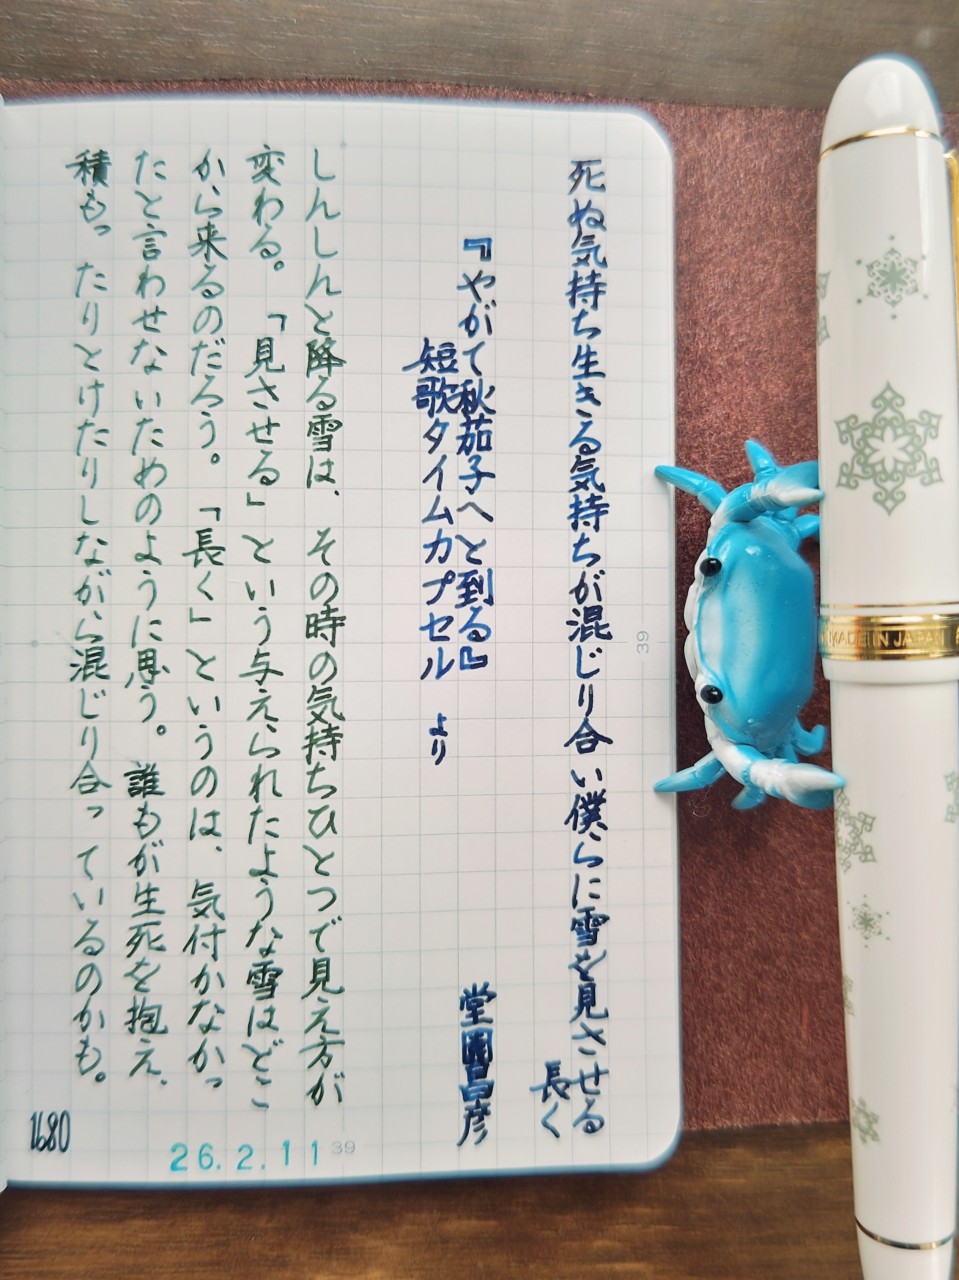 死ぬ気持ち生きる気持ちが混じり合い僕らに雪を見させる
長く
『やがて秋茄子へと到る』
堂園昌彦
短歌タイムカプセル より
しんしんと降る雪は、その時の気持ちひとつで見え方が
変わる。「見させる」という与えられたような雪はどこ
から来るのだろう。「長く」というのは、気付かなかっ
たと言わせないためのように思う。誰もが生死を抱え、
積もったりとけたりしながら混じり合っているのかも。
1680
26.2.11
39
39
MADE IN JAPAN